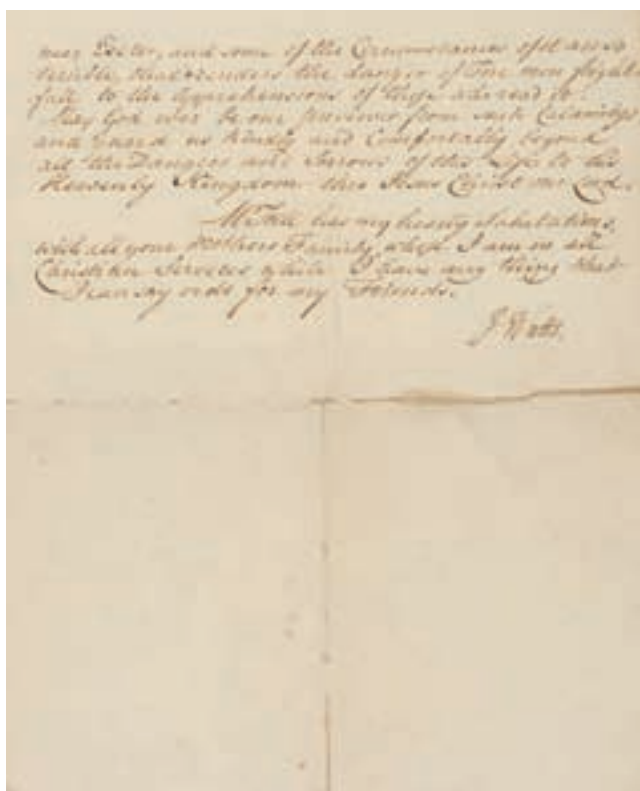 near Exeter, and some of the Circumstances of it are so
terrible, that renders the danger of Fire more fright
full to the Apprehensions of those who read it.
May God ever be our preserver from such Calamitys
and guard us kindly and Comfortably beyond
all the Dangers and Sorrows of this Life to his
Heavenly Kingdom thro Jesus Christ our Lord.
has my hearty Salutations,
with all your Mothers Family, whose I am in all
Christian Services while I have any thing that
I can say or do for my Friends.
J Watts.